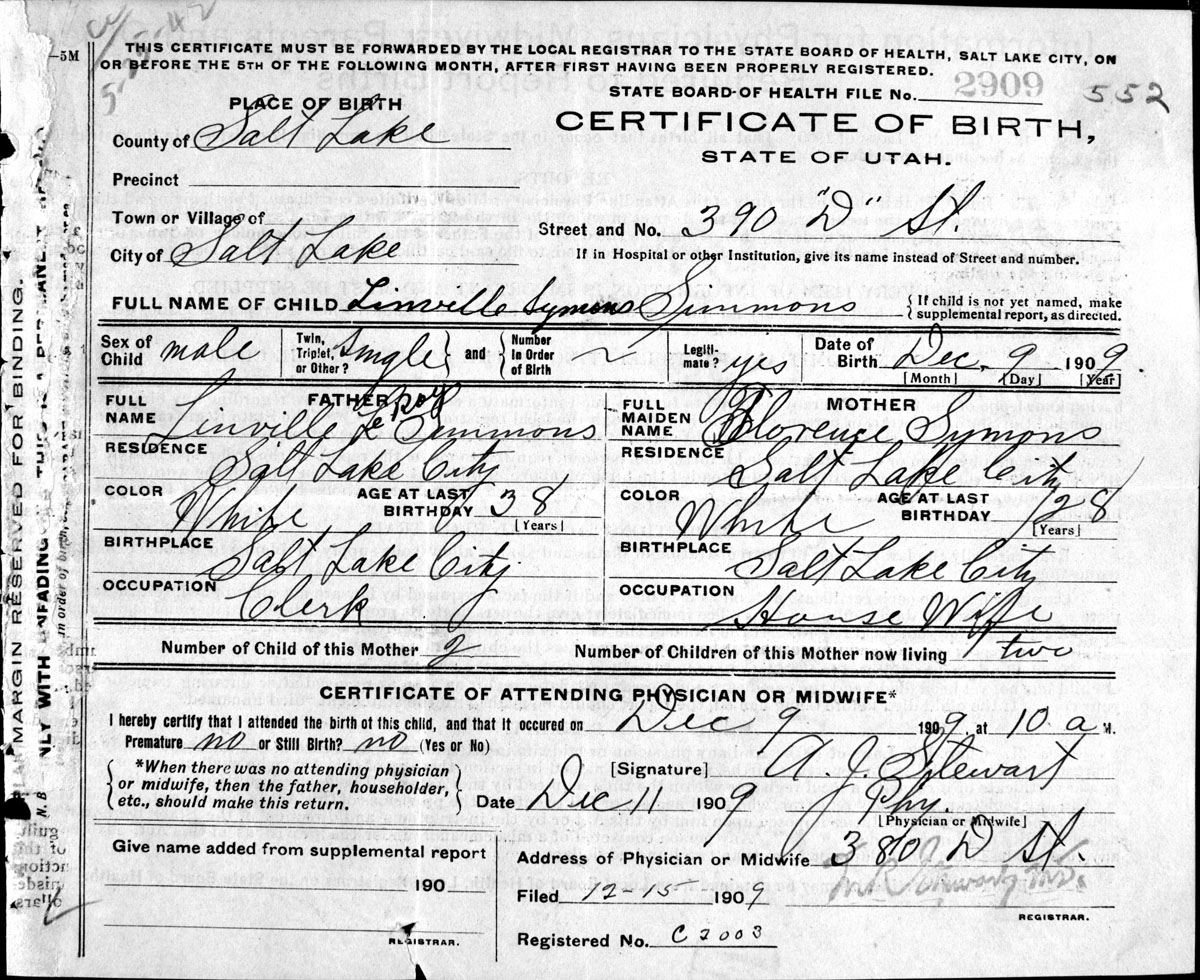 -5M
THIS CERTIFICATE MUST BE FORWARDED BY THE LOCAL REGISTRAR TO THE STATE BOARD OF HEALTH, SALT LAKE CITY, ON
OR BEFORE THE 5TH OF THE FOLLOWING MONTH, AFTER FIRST HAVING BEEN PROPERLY REGISTERED.
STATE BOARD OF HEALTH FILE No. 2909 552
PLACE OF BIRTH
CERTIFICATE OF BIRTH,
STATE OF UTAH.
County of Salt Lake
Precinct
Town or Village of
City of Salt Lake
Street and No. 390 "D" St.
If in Hospital or other Institution, give its name instead of Street and number.
FULL NAME OF CHILD Linville Symons Simmons { If child is not yet named, make supplemental report, as directed.
Sex of Child male Twin, Triplet, or Other? Single and Number in Order of Birth Legiti-mate? yes Date of Birth Dec. 9 1909
[Month] [Day] [Year]
FATHER
FULL NAME Linville Le Roy Simmons
RESIDENCE Salt Lake City
COLOR White AGE AT LAST BIRTHDAY 38 [Years]
BIRTHPLACE Salt Lake City
OCCUPATION Clerk
MOTHER
FULL MAIDEN NAME Florence Symons
RESIDENCE Salt Lake City
COLOR White AGE AT LAST BIRTHDAY 28 [Years]
BIRTHPLACE Salt Lake City
OCCUPATION House Wife
Number of Child of this Mother 2 Number of Children of this Mother now living two
CERTIFICATE OF ATTENDING PHYSICIAN OR MIDWIFE*
I hereby certify that I attended the birth of this child, and that it occured on Dec 9 1909, at 10. a M.
Premature no or Still Birth? no (Yes or No)
*When there was no attending physician
or midwife, then the father, householder,
etc., should make this return.
[Signature] A. J. Stewart
Date Dec 11 1909 Phy.
[Physician or Midwife]
Give name added from supplemental report
190
REGISTRAR.
Address of Physician or Midwife 380 D St.
Filed 12-15 1909
REGISTRAR.
Registered No. C2003
MARGIN RESERVED FOR BINDING.